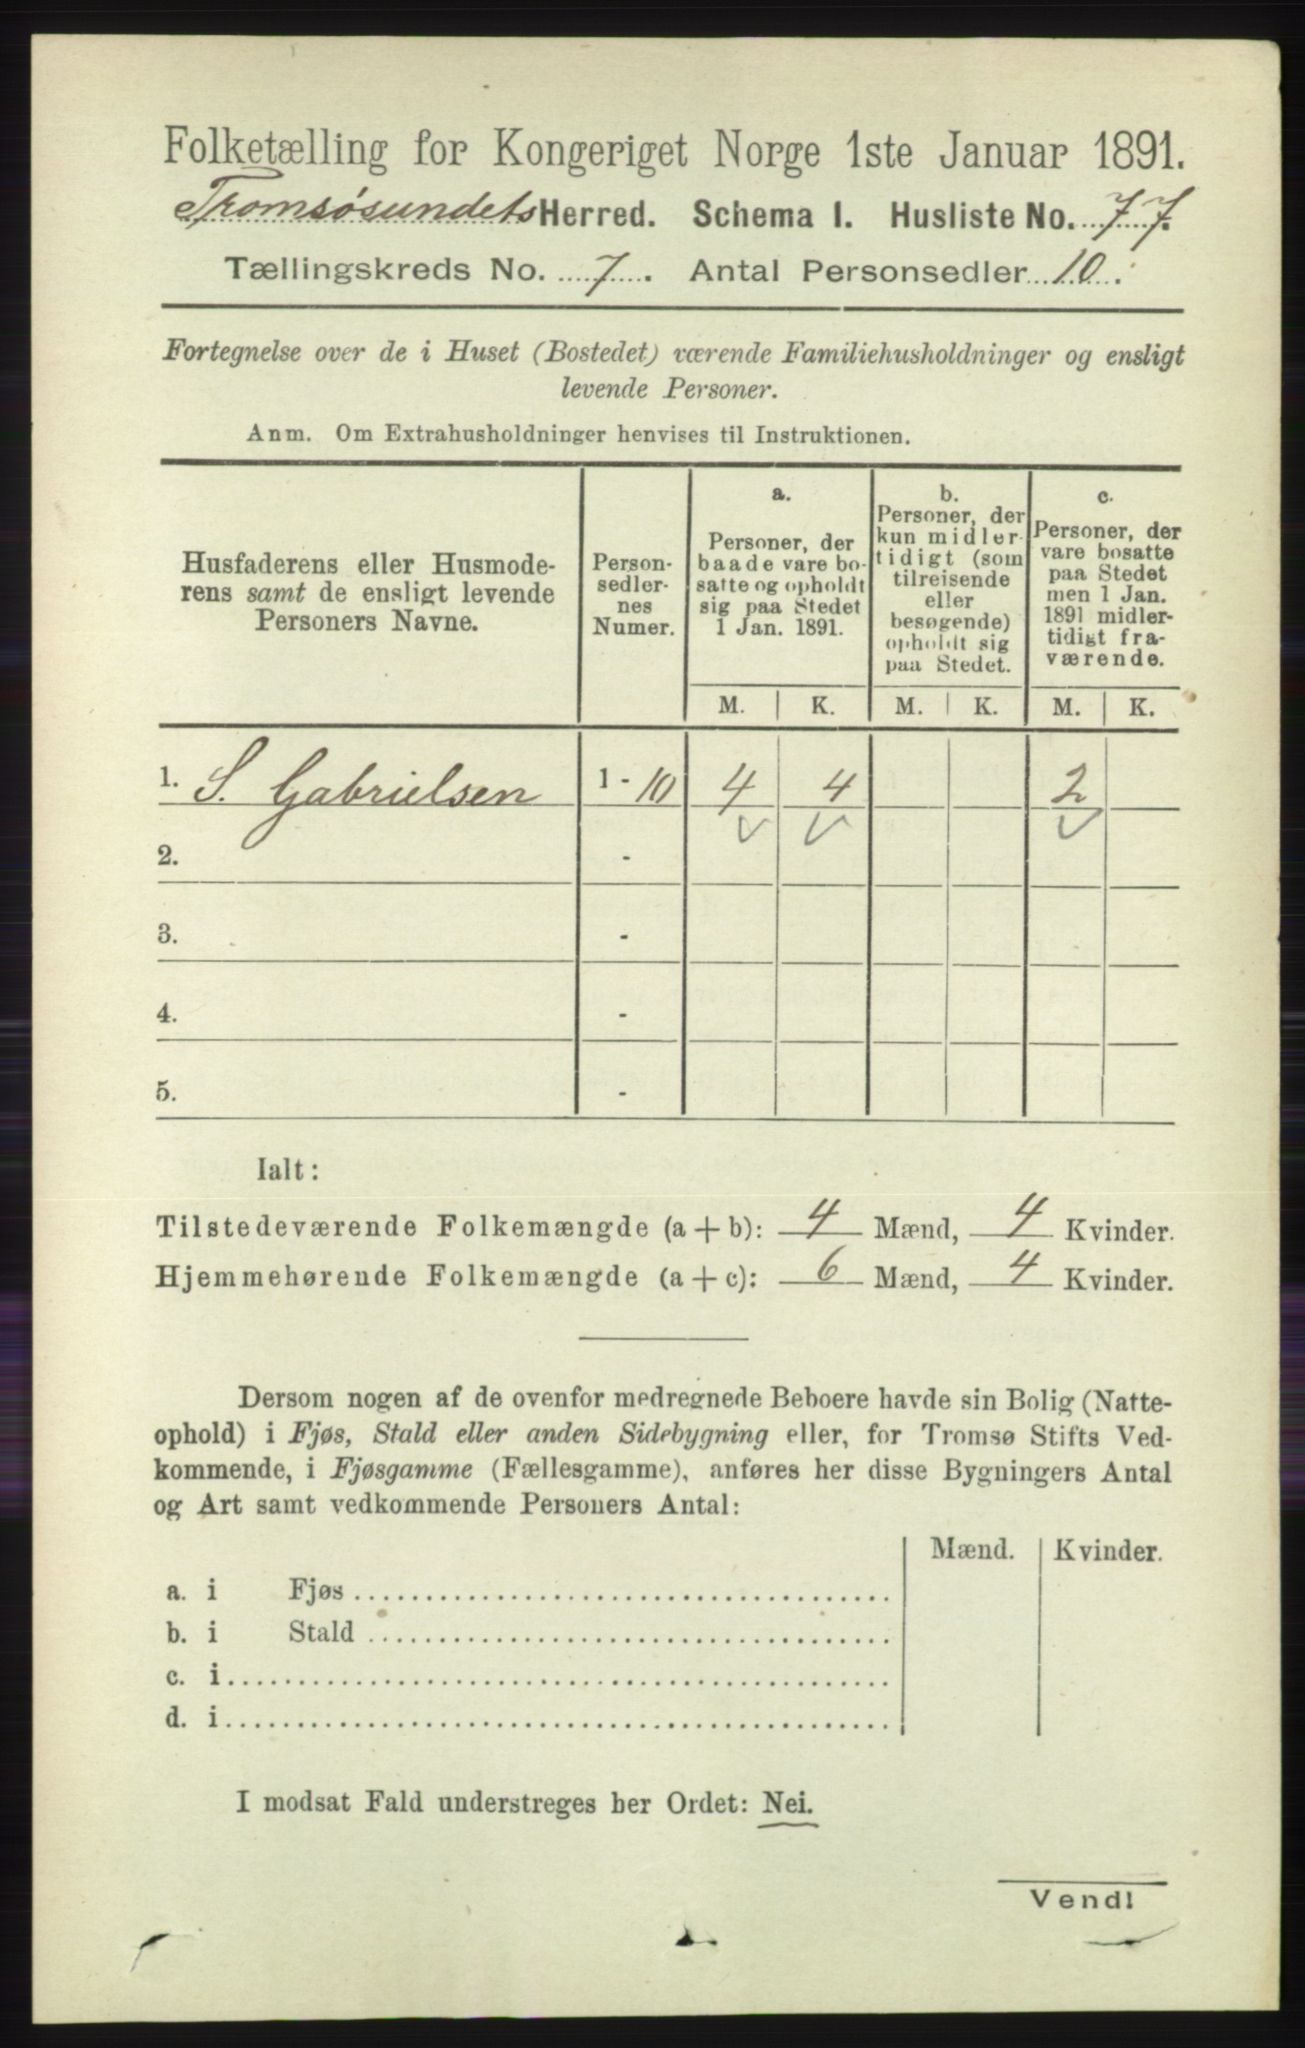 Folketælling for Kongeriget Norge 1ste Januar 1891.
Tromsøsundets Herred. Schema I. Husliste No. 77.
Tællingskreds No. 7. Antal Personsedler 10.
Fortegnelse over de i Huset (Bostedet) værende Familiehusholdninger og ensligt
levende Personer.
Anm. Om Extrahusholdninger henvises til Instruktionen.
Husfaderens eller Husmode-
rens samt de ensligt levende
Personers Navne.
Person-
sedler-
nes
Numer.
a.
Personer, der
baade vare bo-
satte og opholdt
sig paa Stedet
1 Jan. 1891.
b.
Personer, der
kun midler-
tidigt (som
tilreisende
eller
besøgende)
opholdt sig
paa Stedet.
c.
Personer, der
vare bosatte
paa Stedet
men 1 Jan.
1891 midler-
tidigt fra-
værende.
M. K. M. K. M. K.
1. S. Gabrielsen 1 - 10 4 4 2
2. -
3. -
4. -
5. -
Ialt:
Tilstedeværende Folkemængde (a + b): 4 Mænd, 4 Kvinder.
Hjemmehørende Folkemængde (a + c): 6 Mænd, 4 Kvinder.
Dersom nogen af de ovenfor medregnede Beboere havde sin Bolig (Natte-
ophold) i Fjøs, Stald eller anden Sidebygning eller, for Tromsø Stifts Ved-
kommende, i Fjøsgamme (Fællesgamme), anføres her disse Bygningers Antal
og Art samt vedkommende Personers Antal:
Mænd. Kvinder.
a. i Fjøs
b. i Stald
c. i
d. i
I modsat Fald understreges her Ordet: Nei.
Vend!